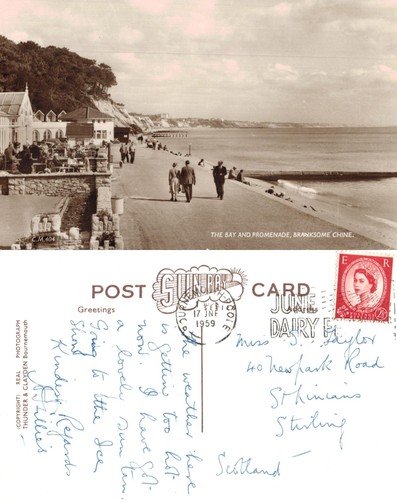 C.M. 404
THE BAY AND PROMENADE, BRANKSOME CHINE.
POST CARD
Greetings
Address
SUNRAY
POOLE
17 JNE
1959
JUNE
DAIRY
E R
(COPYRIGHT) REAL PHOTOGRAPH
THUNDER & CLAYDEN Bournemouth
The weather here
is getting too hot
now. I have got
a lovely sun tan.
Going to the Ice
Show
Kindest Regards
Miss Taylor
40 Newpark Road
St Ninians
Stirling
Scotland